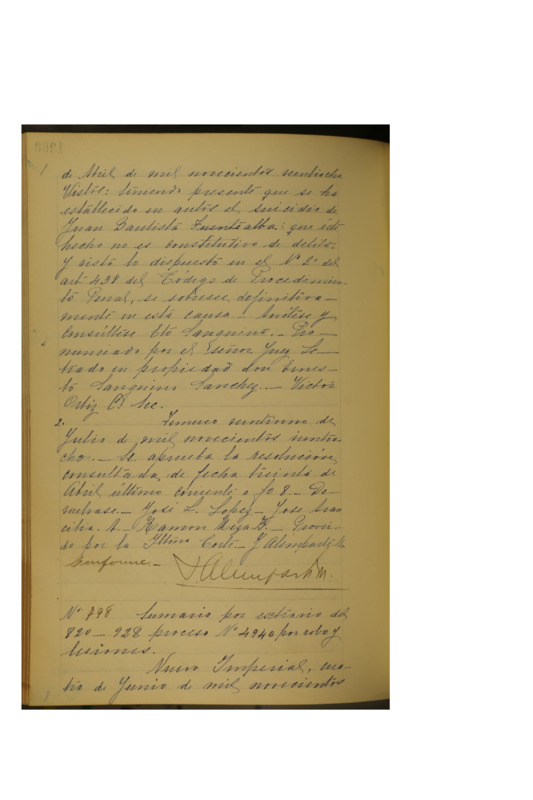 1
de Abril de mil novecientos veintiocho
Vistos: teniendo presente que se ha
establecido en autos el suicidio de
Juan Bautista Fuentealba: que este
hecho no es constitutivo de delito:
y visto lo dispuesto en el Nº 2º del
artº 438 del Código de Procedimien-
to Penal, se sobresee definitiva-
mente en esta causa. Anótese y
Consúltese Eto Sanguino. - Pro-
nunciado por el señor Juez Le-
trado en propiedad don Ernes-
to Sanguino Sanchez. - Victor
Ortiz C) Sec.
2. Temuco veintiuno de
Julio de mil novecientos veintio-
cho. - Se aprueba la resolución
consultada, de fecha treinta de
Abril último corriente a fs 8. - De-
vuélvase. - José L. Lopez - Jose
A. - Ramon Meza B. - Provei-
do por la Iltma Corte - J Alemparte M.
Conforme. -
J Alemparte M.
Nº 798 Sumario por extravio del
820 - 928 proceso Nº 4940 por robo y
lesiones.
Nueva Imperial, cua-
tro de Junio de mil novecientos